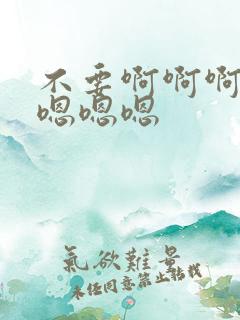 不要啊啊啊
嗯嗯嗯
氣欲難量
未经同意禁止转载